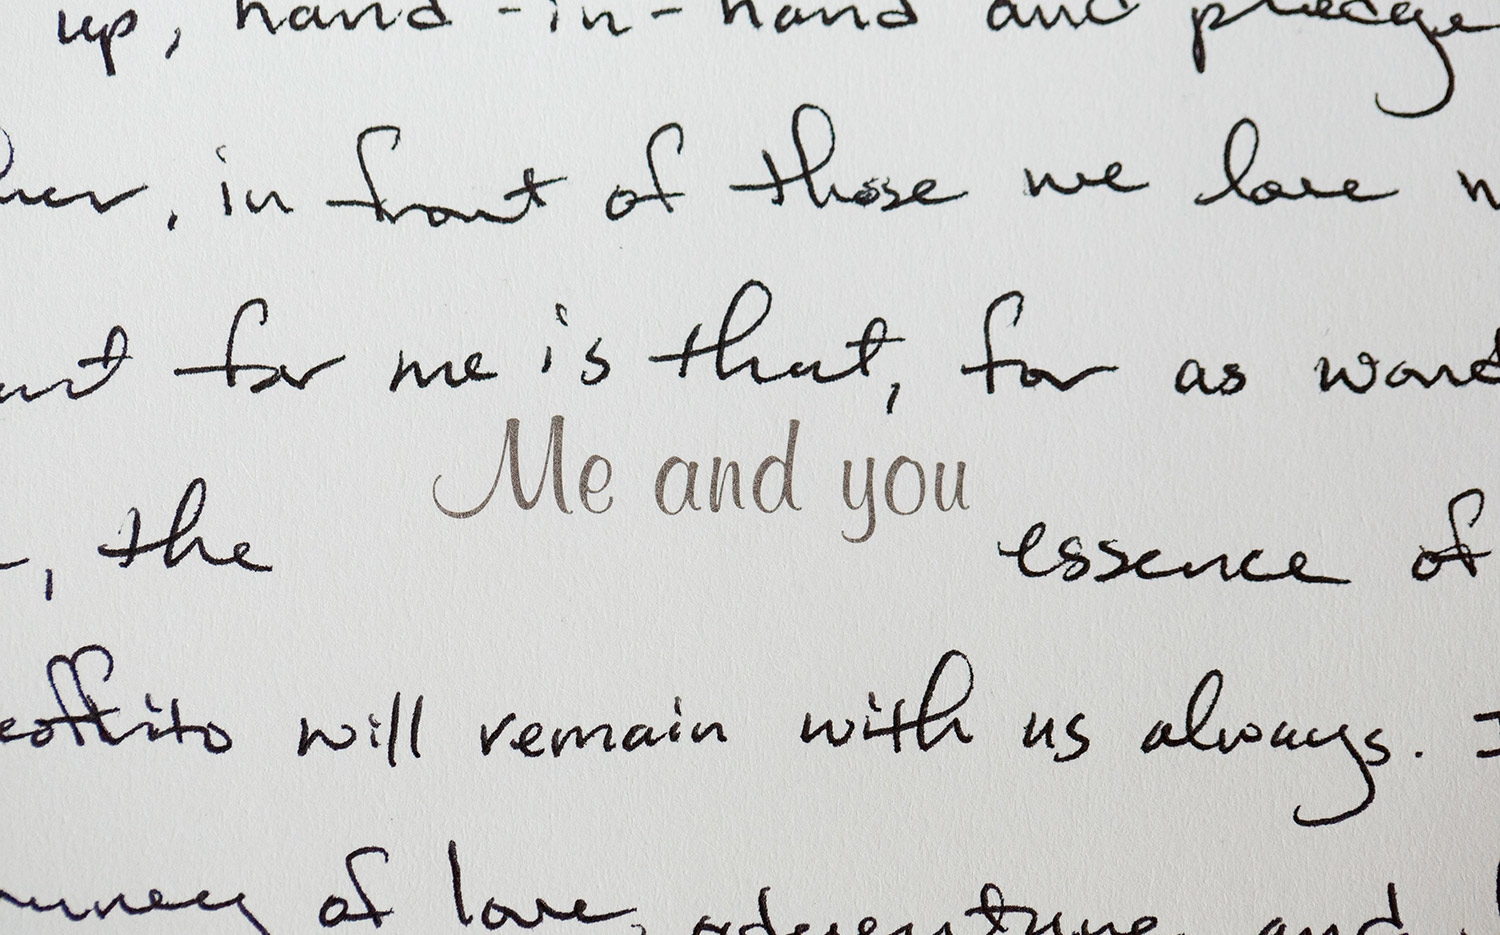 up, hand-in-hand and pledge
, in front of those we love
for me is that, for as
Me and you
, the essence of
will remain with us always.
of love, adventure, and